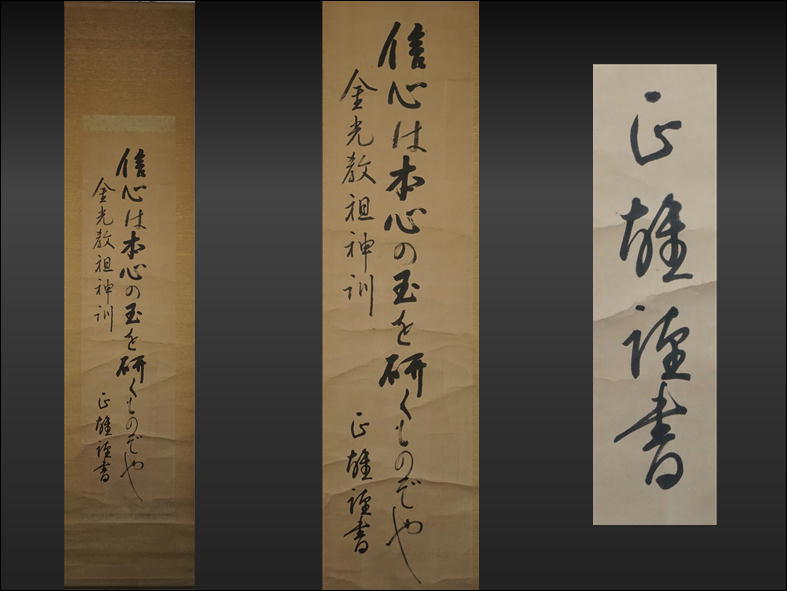 信心は本心の玉を研くものぞや
金光教祖神訓
正雄謹書
信心は本心の玉を研くものぞや
金光教祖神訓
正雄謹書
正雄謹書